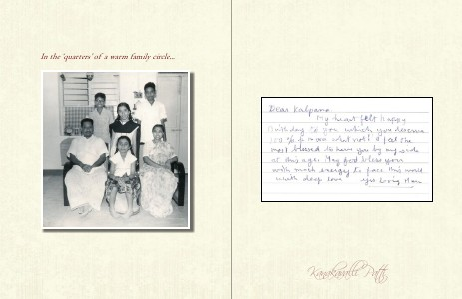 In the 'quarters' of a warm family circle...
Dear Kalpana
My heart felt happy
Birthday to you which you deserve
100 % & more what not! I feel the
most blessed to have you by my side
at this age. May God bless you
with more energy to face this world
with deep love
Kanakavalli Patti